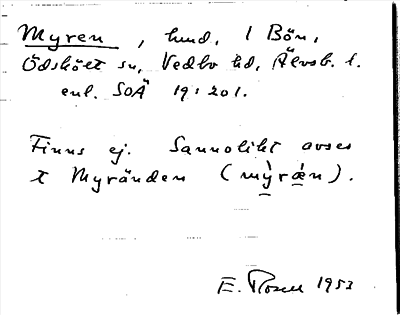 Myren, lund, 1 Bön,
Ödskölt sn, Vedbo hd, Älvsb. l.
enl. SOÄ 19: 201.
Finns ej. Sannolikt avses
t Myränden (mỳrǽn).
E. Rosell 1953